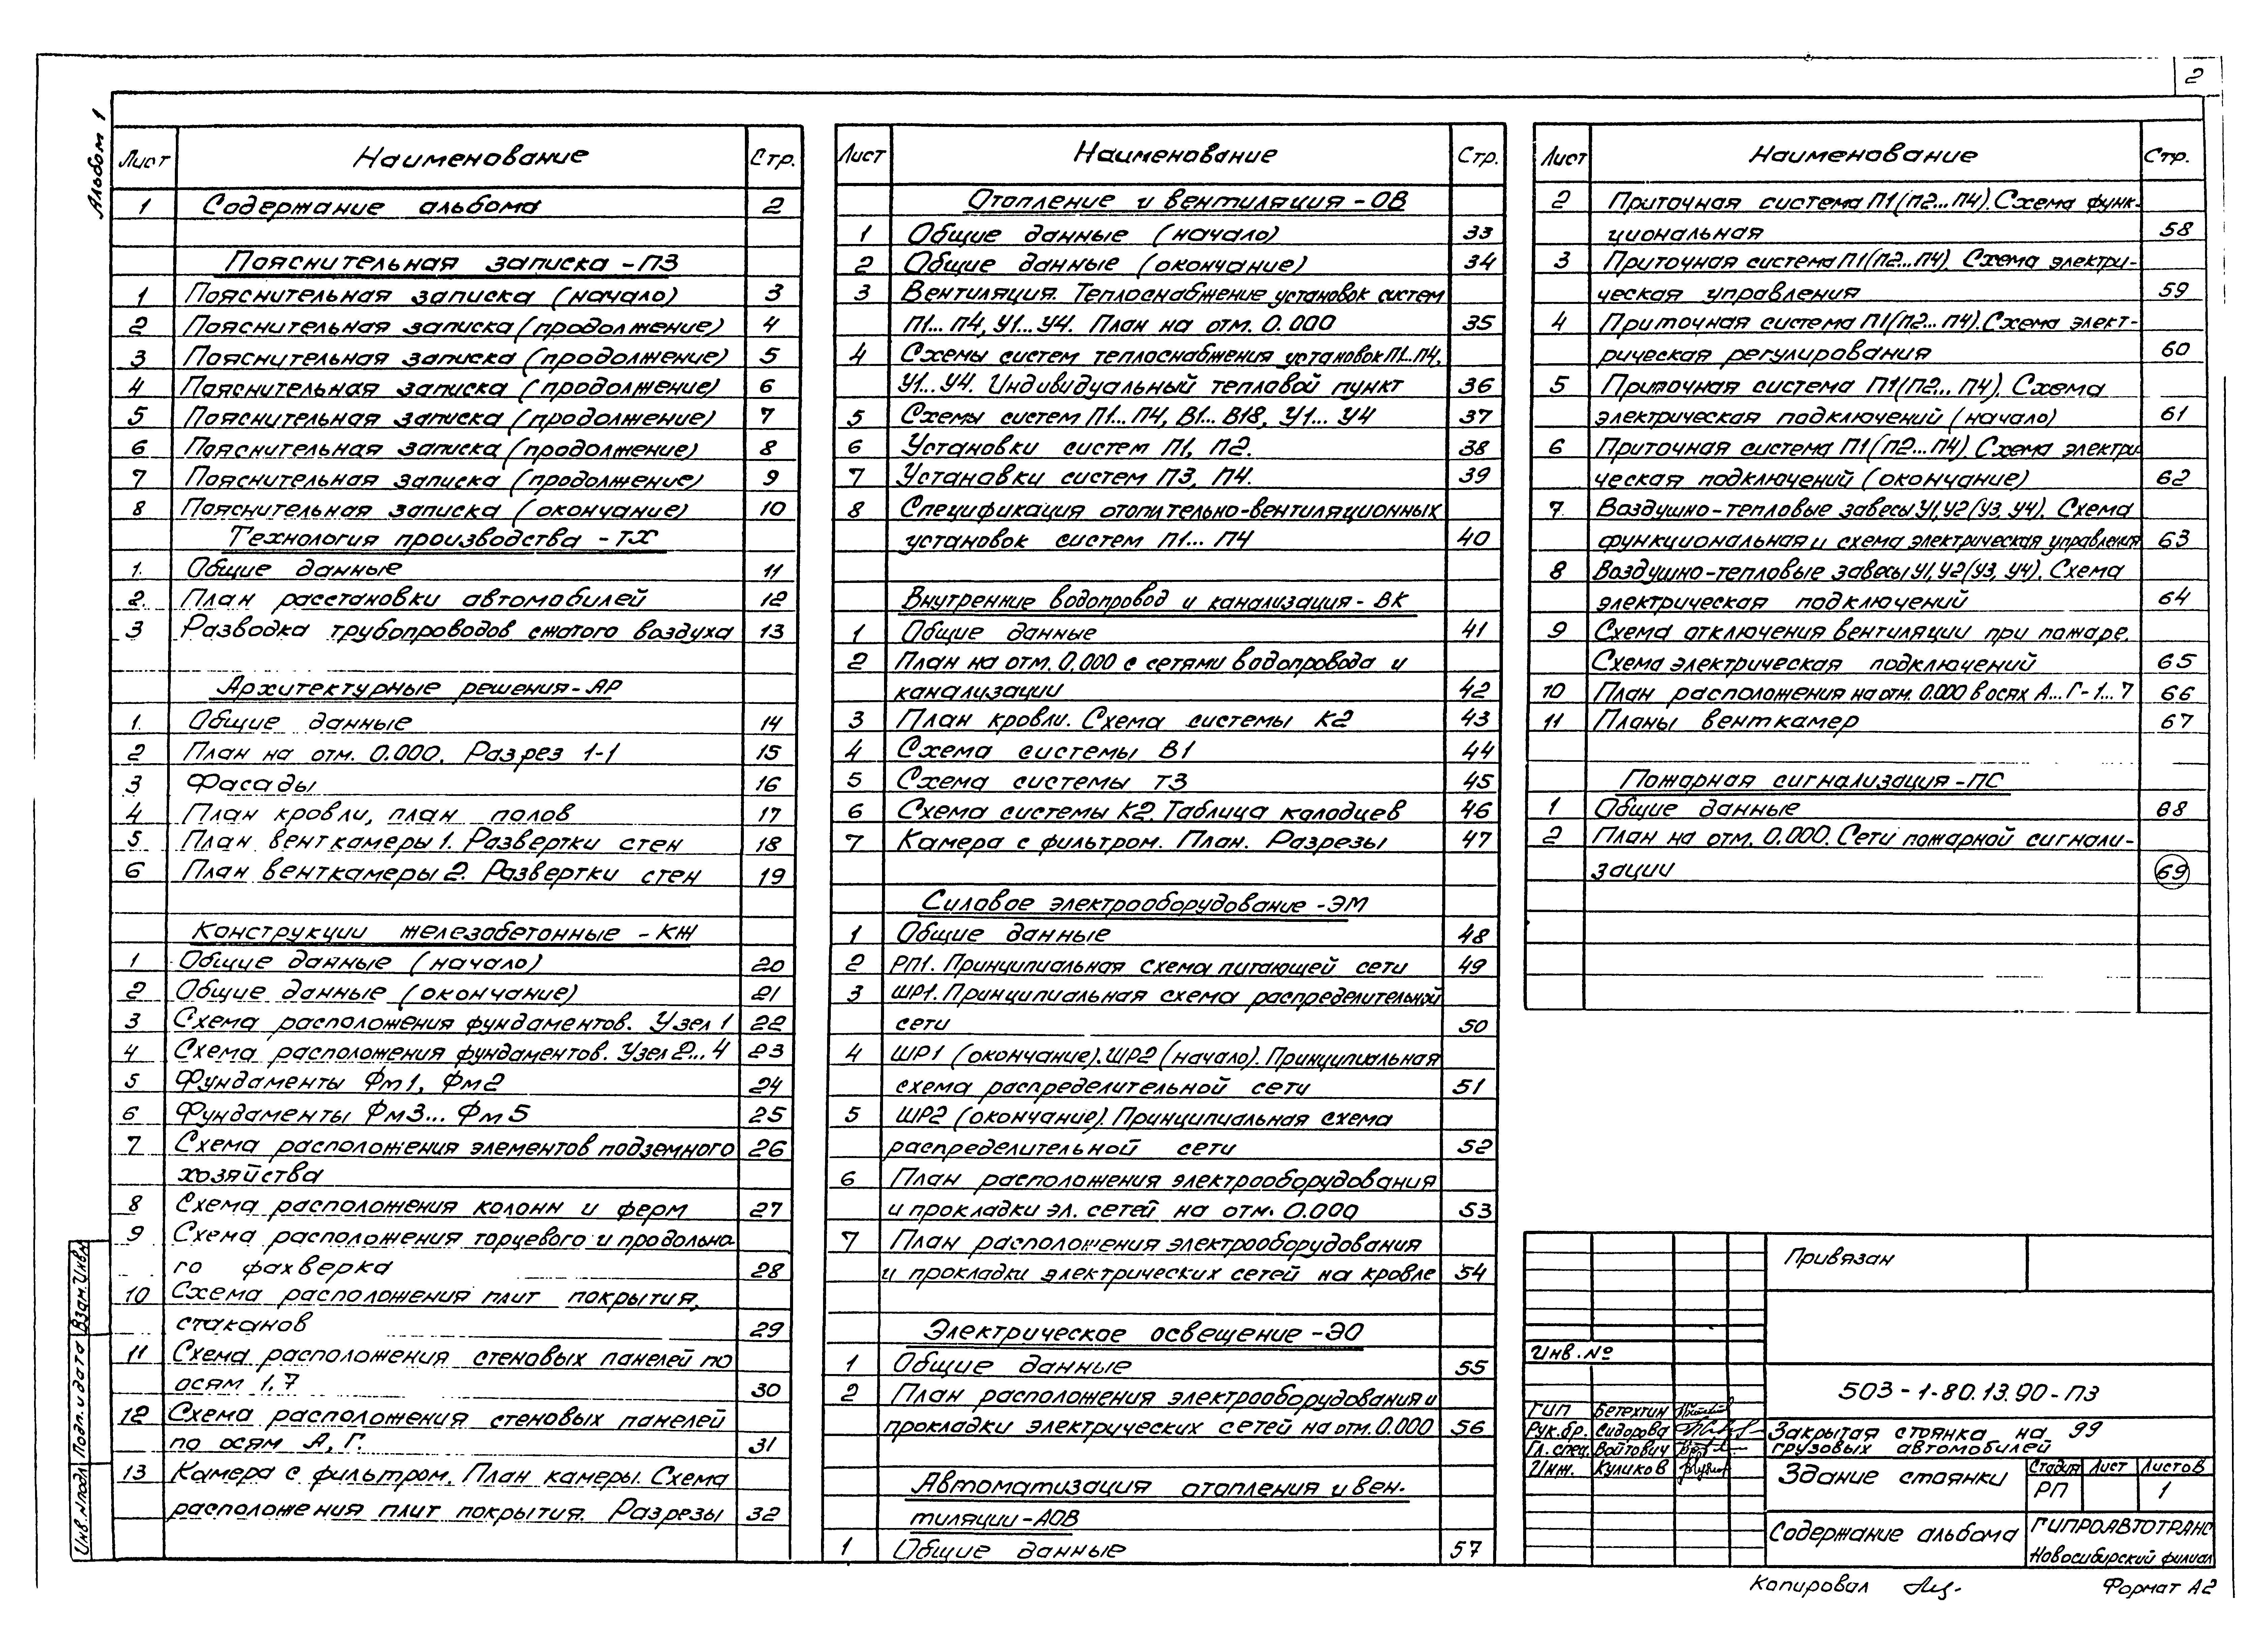 2
Альбом 1
Лист Наименование Стр.
1 Содержание альбома 2
Пояснительная записка - ПЗ
1 Пояснительная записка (начало) 3
2 Пояснительная записка (продолжение) 4
3 Пояснительная записка (продолжение) 5
4 Пояснительная записка (продолжение) 6
5 Пояснительная записка (продолжение) 7
6 Пояснительная записка (продолжение) 8
7 Пояснительная записка (продолжение) 9
8 Пояснительная записка (окончание) 10
Технология производства - ТХ
1. Общие данные 11
2. План расстановки автомобилей 12
3 Разводка трубопроводов сжатого воздуха 13
Архитектурные решения - АР
1. Общие данные 14
2 План на отм. 0.000. Разрез 1-1 15
3 Фасады 16
4 План кровли, план полов 17
5 План венткамеры 1. Развертки стен 18
6 План венткамеры 2. Развертки стен 19
Конструкции железобетонные - КЖ
1 Общие данные (начало) 20
2 Общие данные (окончание) 21
3 Схема расположения фундаментов. Узел 1 22
4 Схема расположения фундаментов. Узел 2...4 23
5 Фундаменты Фм1, Фм2 24
6 Фундаменты Фм3... Фм5 25
7 Схема расположения элементов подземного 26
хозяйства
8 Схема расположения колонн и ферм 27
9 Схема расположения торцевого и продольно-
го фахверка 28
10 Схема расположения плит покрытия,
стаканов 29
11 Схема расположения стеновых панелей по
осям 1,7 30
12 Схема расположения стеновых панелей
по осям А, Г. 31
13 Камера с фильтром. План камеры. Схема
расположения плит покрытия. Разрезы 32
Лист Наименование Стр.
Отопление и вентиляция - ОВ
1 Общие данные (начало) 33
2 Общие данные (окончание) 34
3 Вентиляция. Теплоснабжение установок систем
П1... П4, У1... У4. План на отм. 0.000 35
4 Схемы систем теплоснабжения установок П1...П4,
У1... У4. Индивидуальный тепловой пункт 36
5 Схемы систем П1... П4, В1... В18, У1... У4 37
6 Установки систем П1, П2. 38
7 Установки систем П3, П4. 39
8 Спецификация отопительно-вентиляционных
установок систем П1... П4 40
Внутренние водопровод и канализация - ВК
1 Общие данные 41
2 План на отм. 0.000 с сетями водопровода и
канализации 42
3 План кровли. Схема системы К2 43
4 Схема системы В1 44
5 Схема системы Т3 45
6 Схема системы К2. Таблица колодцев 46
7 Камера с фильтром. План. Разрезы 47
Силовое электрооборудование - ЭМ
1 Общие данные 48
2 РП1. Принципиальная схема питающей сети 49
3 ШР1. Принципиальная схема распределительной
сети 50
4 ШР1 (окончание). ШР2 (начало). Принципиальная
схема распределительной сети 51
5 ШР2 (окончание). Принципиальная схема
распределительной сети 52
6 План расположения электрооборудования
и прокладки эл. сетей на отм. 0.000 53
7 План расположения электрооборудования
и прокладки электрических сетей на кровле 54
Электрическое освещение - ЭО
1 Общие данные 55
2 План расположения электрооборудования и
прокладки электрических сетей на отм. 0.000 56
Автоматизация отопления и вен-
тиляции - АОВ
1 Общие данные 57
Лист Наименование Стр.
2 Приточная система П1(П2...П4). Схема функ-
циональная 58
3 Приточная система П1(П2...П4). Схема электри-
ческая управления 59
4 Приточная система П1(П2...П4). Схема элект-
рическая регулирования 60
5 Приточная система П1(П2...П4). Схема
электрическая подключений (начало) 61
6 Приточная система П1(П2...П4). Схема электри-
ческая подключений (окончание) 62
7. Воздушно-тепловые завесы У1,У2(У3, У4). Схема
функциональная и схема электрическая управления 63
8 Воздушно-тепловые завесы У1,У2(У3, У4). Схема
электрическая подключений 64
9 Схема отключения вентиляции при пожаре.
Схема электрическая подключений 65
10 План расположения на отм. 0.000 в осях А...Г-1...7 66
11 Планы венткамер 67
Пожарная сигнализация - ПС
1 Общие данные 68
2 План на отм. 0.000. Сети пожарной сигнали-
зации 69
Привязан
Инв. №
503-1-80.13.90-ПЗ
ГИП Бетехтин
Рук.бр. Сидорова
Гл. спец. Войтович
Инж. Куликов
Закрытая стоянка на 99
грузовых автомобилей
Здание стоянки
Стадия Лист Листов
РП 1
Содержание альбома
ГИПРОАВТОТРАНС
Новосибирский филиал
Инв. № подл. Подп. и дата Взам. Инв. №
Копировал
Формат А2